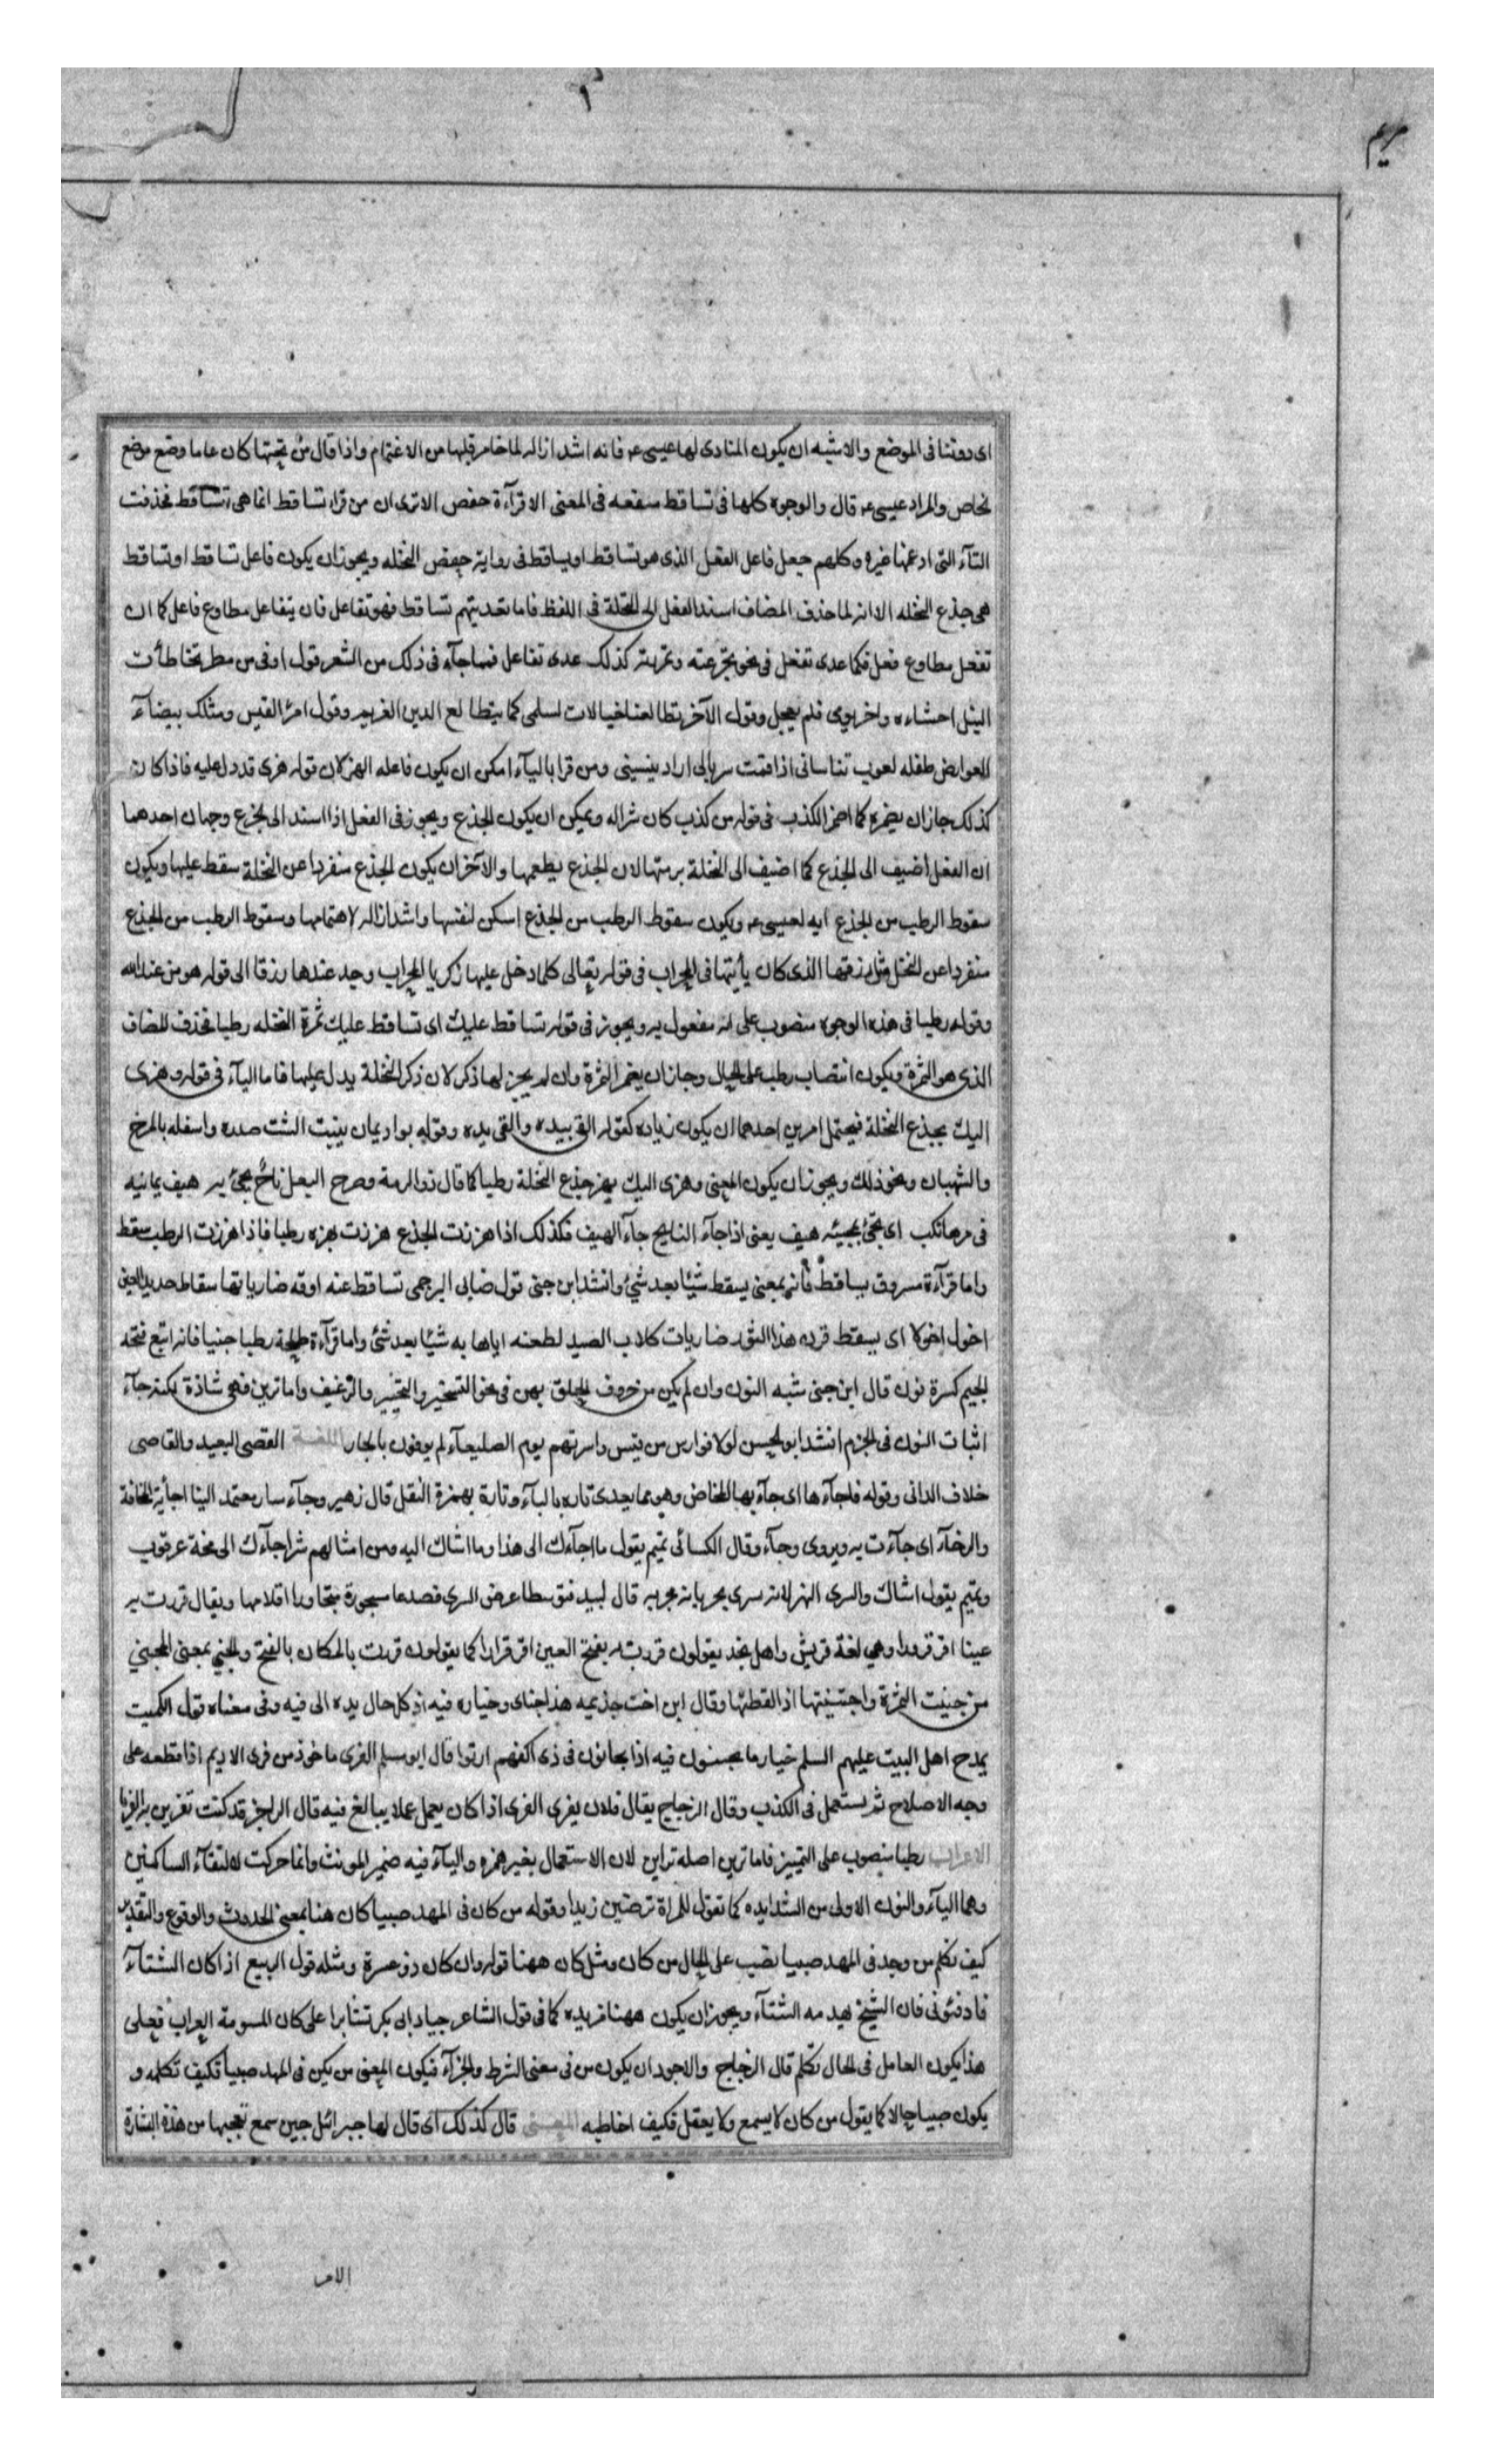 مريم
اى دوننا فى الموضع والاشبه ان يكون المنادى لها عيسى عه فانه اشد ازاله لما خامر قلبها من الاغتمام واذا قال من تحتها كان عاما وضع موضع
لخاص والمراد عيسى عه قال والوجوه كلها فى تساقط متفقه فى المعنى الا قرآءة حفص الا ترى ان من قراء تساقط انما هى تتساقط فحذفت
التآء التى ادغمها غيره وكلهم جعل فاعل الفعل الذى هو تساقط او يساقط فى رواية حفص النخله ويجوز ان يكون فاعل تساقط او تساقط
هى جذع النخله الا انه لما حذف المضاف اسند الفعل الى النخلة فى اللفظ فاما تعديتهم تساقط فهو تفاعل فان يتفاعل مطاوع فاعل كما ان
تفعل مطاوع فعل فكما عدى تفعل فى نحو تجرعته وتمزيته كذلك عدى تفاعل فمما جآء فى ذلك من الشعر قول اوفى من مطر تخاطأت
النبل احشاءه واخر يومى فلم يعجل وقول الآخر تطالعنا خيالات لسلمى كما يتطالع الدين الغريم وقول امرئ القيس ومثلك بيضآء
العوارض طفله لعوب تناسانى اذا قمت سربالى اراد ينسينى ومن قرا باليآء امكن ان يكون فاعله الهز لان قوله هزى قد دل عليه فاذا كان
كذلك جاز ان يضمره كما اضمر الكذب فى قوله من كذب كان شرا له ويمكن ان يكون الجذع ويجوز فى الفعل اذا اسند الى الجذع وجهان احدهما
ان الفعل اضيف الى الجذع كما اضيف الى النخلة برمتها لان الجذع يطعمها والآخر ان يكون الجذع منفردا عن النخلة سقط عليها ويكون
سقوط الرطب من الجذع ايه لعيسى عه ويكون سقوط الرطب من الجذع اسكن لنفسها واشد ازاله لاهتمامها وسقوط الرطب من الجذع
منفردا عن النخل مثل رزقها الذى كان يأتيها فى المحراب فى قوله تعالى كلما دخل عليها زكريا المحراب وجد عندها رزقا الى قوله هو من عند الله
وقوله رطبا فى هذه الوجوه منصوب على انه مفعول به ويجوز فى قوله تساقط عليك اى تساقط عليك ثمرة النخله رطبا فحذف المضاف
الذى هو الثمرة ويكون انتصاب رطب على الحال وجاز ان يضمر الثمرة وان لم يجز لها ذكر لان ذكر النخلة يدل عليها فاما البآء فى قوله وهزى
اليك بجذع النخلة فيحتمل امرين احدهما ان يكون زياده كقوله القى بيده والقى يده وقوله بواد يمان ينبت الشث صدره واسفله بالمرخ
والشبهان ونحو ذلك ويجوز ان يكون المعنى وهزى اليك بهز جذع النخلة رطبا كما قال ذو الرمة وصرح البعل نأج تجئ به هيف يمانيه
فى مرها نكب اى تجئ بمجيئه هيف يعنى اذا جآء النايج جآء الهيف فكذلك اذا هززت الجذع هززت بهزه رطبا فاذا هززت الرطب سقط
واما قرآءة مسروق يساقط فانه بمعنى يسقط شيئا بعد شئ وانشد ابن جنى قول ضابى البرجمى تساقط عنه اوقه ضارياتها سقاط حديد القين
اخول اخولا اى يسقط قرن هذا الثور ضاريات كلاب الصيد لطعنه اياها به شيئا بعد شئ واما قرآءة طلحة رطبا جنيا فانه اتبع فتحه
الجيم كسرة نون قال ابن جنى شبه النون وان لم يكن من حروف الحلق بهن فى نحو الشخير والنخير والرغيف واما ترين فهى شاذة لكنه جآء
اثبات النون فى الجزم انشد ابو الحسن لولا فوارس من قيس واسرتهم يوم الصليعآء لم يوفون بالجار اللغـــة القصى البعيد والقاصى
خلاف الدانى وقوله فاجآءها اى جآء بها المخاض وهو مما يعدى تاره بالبآء وتارة بهمزة النقل قال زهير وجآء سار معتمد الينا اجأية المخافة
والرخآء اى جآءت به ويروى وجآء وقال الكسائى تميم يقول ما اجآءك الى هذا وما اشاك اليه ومن امثالهم شر اجآءك الى مخة عرقوب
وتميم يقول اشاك والسرى النهر لانه سرى بحريانه بجريه قال لبيد فتوسطا عرض السرى فصدعا مسجورة متجاورا اقلامها ويقال قررت به
عينا اقر قرورا وهي لغة قريش واهل نجد يقولون قررت به بفتح العين اقر قرارا كما يقولون قررت بالمكان بالفتح والجني بمعنى المجنني
من جنيت الثمرة واجتنيتها اذا لقطتها وقال ابن اخت جذيمه هذا جناى وخياره فيه اذ كل جان يده الى فيه وفى معناه قول الكميت
يمدح اهل البيت عليهم السلم خيارها يجنون فيه اذا الجانون فى ذى اكفهم ارتوا قال ابو مسلم الفرى ماخوذ من فرى الاديم اذا قطعه على
وجه الاصلاح ثم يستعمل فى الكذب وقال الزجاج يقال فلان يفرى الفرى اذا كان يعمل عملا يبالغ فيه قال الراجز قد كنت تفرين به الفريا
الاعراب رطبا منصوب على التمييز فاما ترين اصله تراين لان الاستعمال بغير همزه واليآء فيه ضمير المونث وانما حركت لالتقآء الساكنين
وهما اليآء والنون الاولى من الشديده كما تقول للمراة ترضين زيدا وقوله من كان فى المهد صبيا كان هنا بمعنى الحدوث والوقوع والتقدير
كيف نكلم من وجد فى المهد صبيا نصب على الحال من كان ومثل كان ههنا قوله وان كان ذو عسرة ومثله قول الربيع اذا كان الشتآء
فادفئونى فان الشيخ يهدمه الشتآء ويجوز ان يكون ههنا مزيده كما فى قول الشاعر جياد ابى بكر تشابرا على كان المسومة العراب فعلى
هذا يكون العامل فى الحال نكلم قال الزجاج والاجود ان يكون من فى معنى الشرط والجزآء فيكون المعنى من يكن فى المهد صبيا فكيف تكلمه و
يكون صبيا حالا كما يقول من كان لا يسمع ولا يعقل فكيف اخاطبه المعـنى قال كذلك اى قال لها جبرائل حين سمع تعجبها من هذه البشارة
الامر